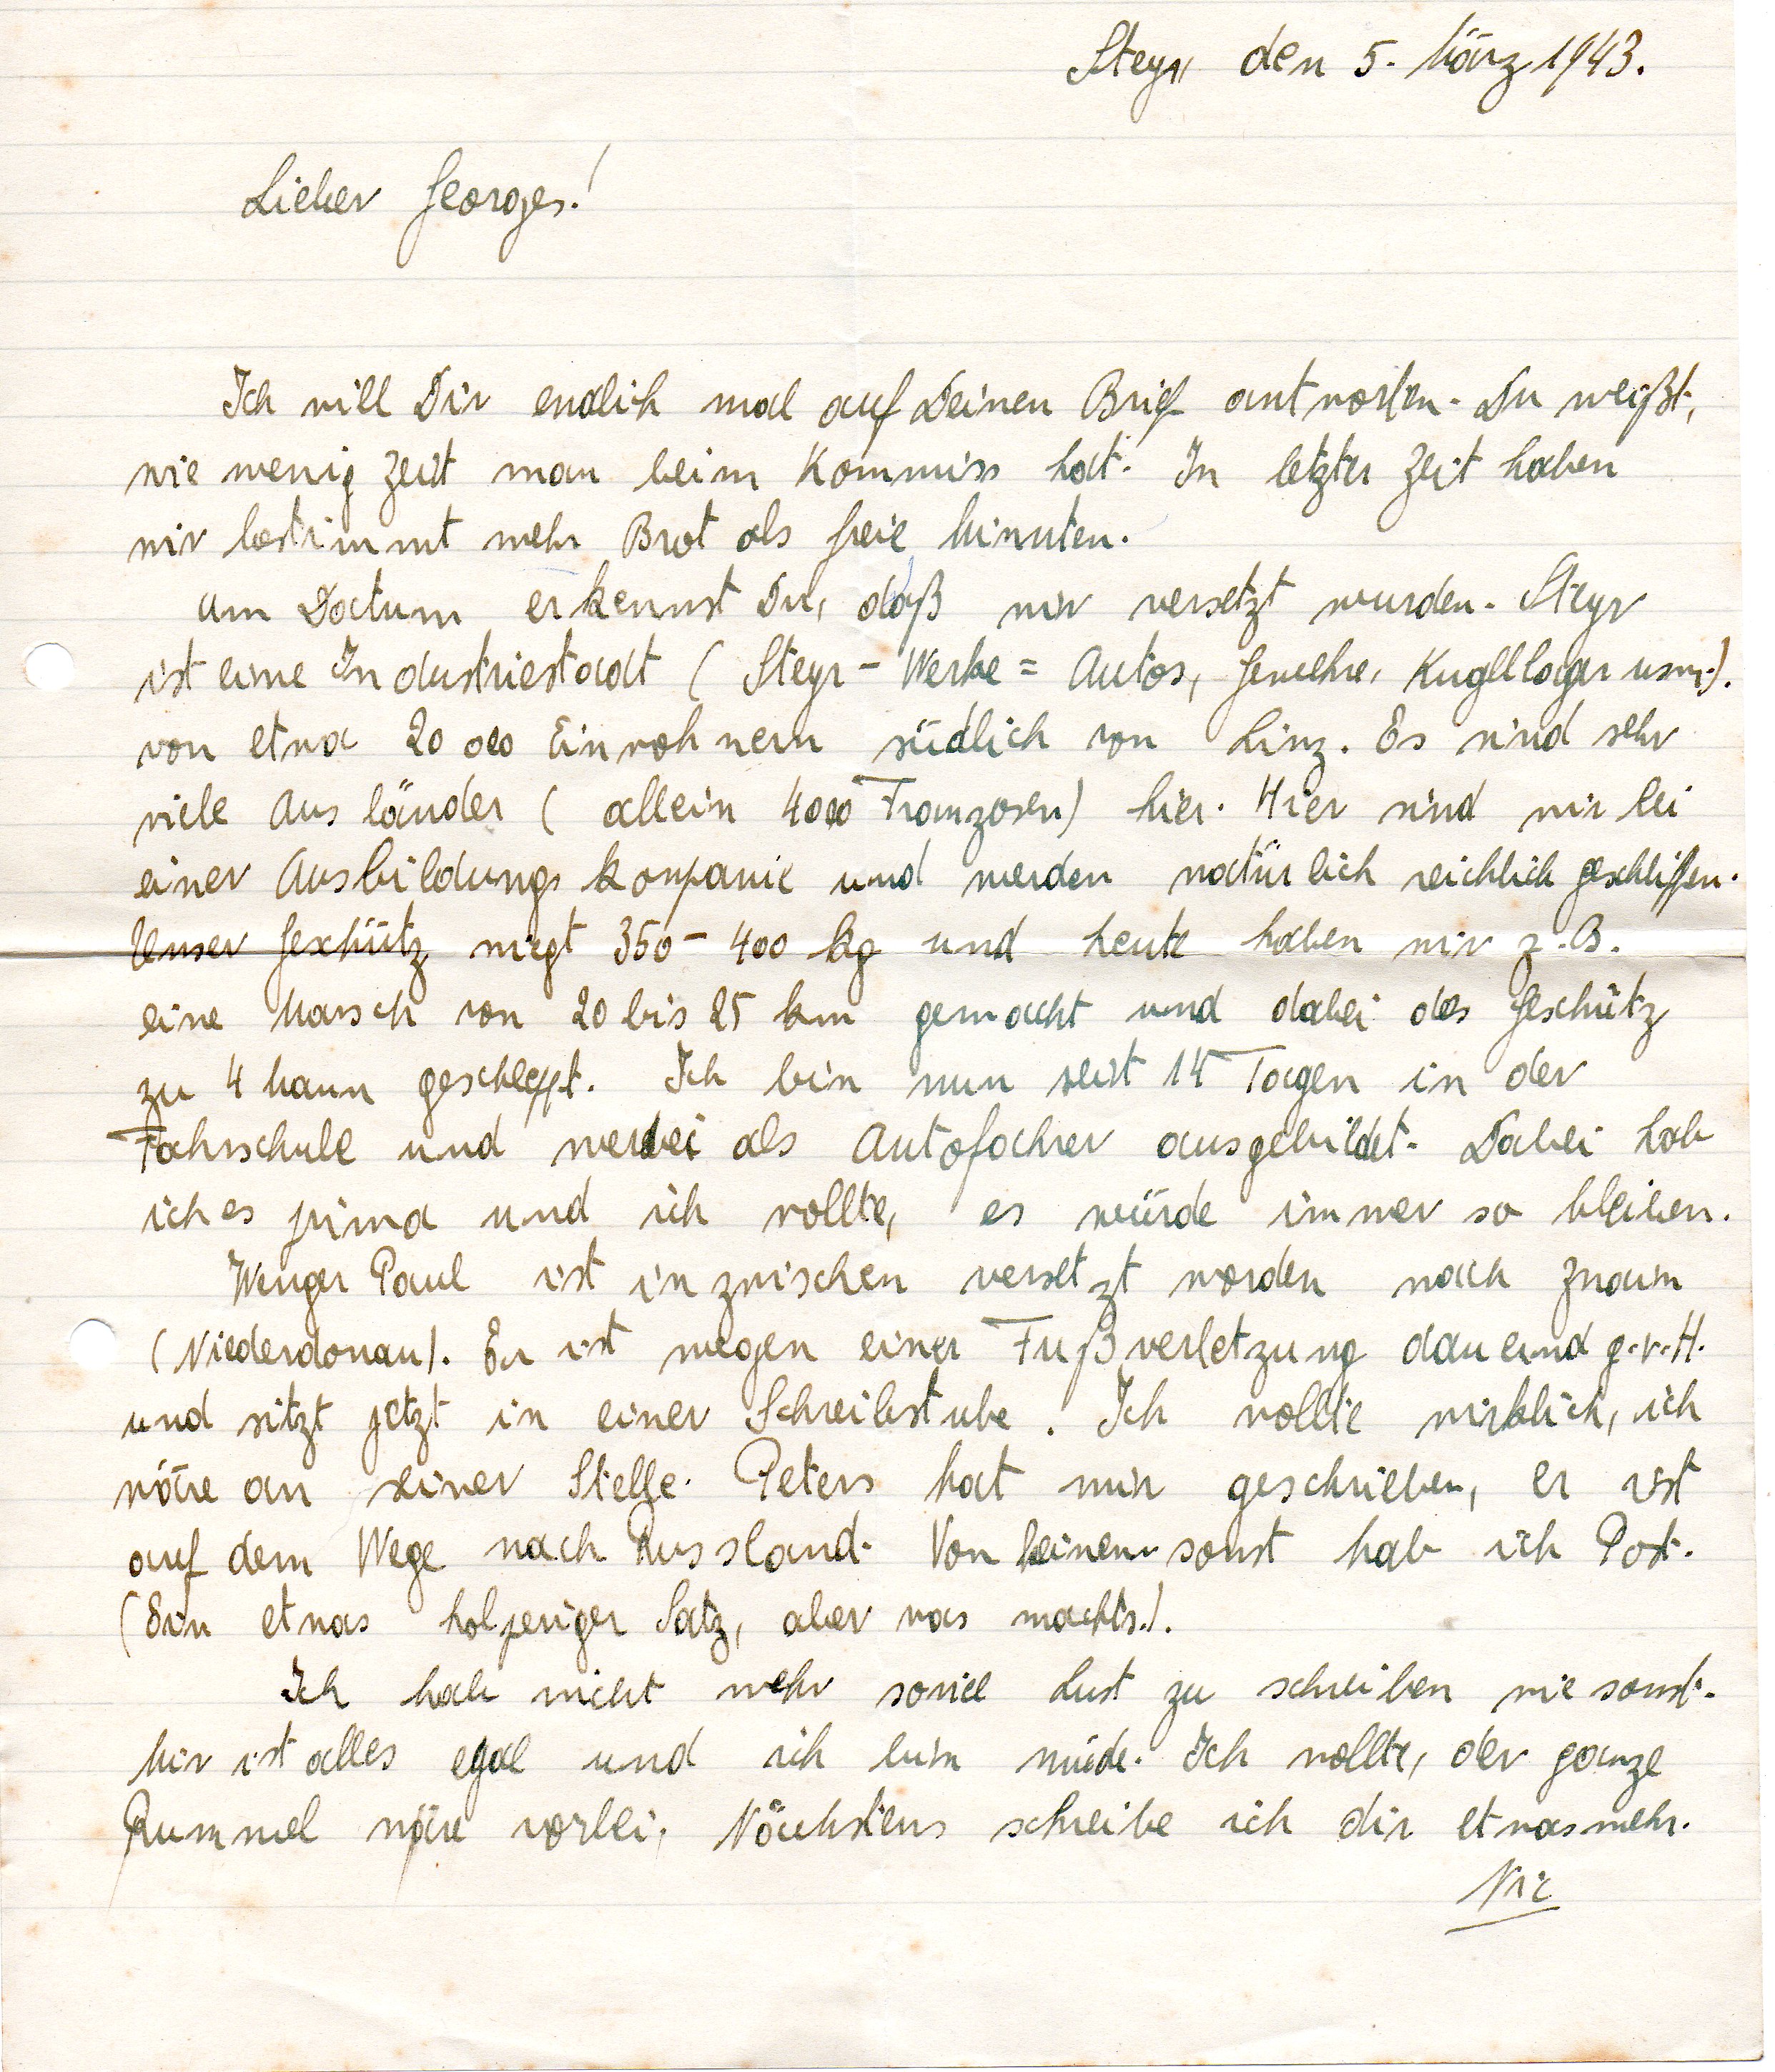 Steyr, den 5. März 1943.
Lieber Georges!
Ich will Dir endlich mal auf Deinen Brief antworten. Du weißt,
wie wenig Zeit man beim Kommiss hat. In letzter Zeit haben
wir bestimmt mehr Brot als freie Minuten.
Am Datum erkennst Du, daß wir versetzt wurden. Steyr
ist eine Industriestadt (Steyr-Werke = Autos, Gewehre, Kugellager usw.).
von etwa 20 000 Einwohnern südlich von Linz. Es sind sehr
viele Ausländer (allein 4000 Franzosen) hier. Hier sind wir bei
einer Ausbildungskompanie und werden natürlich reichlich geschliffen.
Unser Geschütz wiegt 350-400 kg und heute haben wir z.B.
eine Marsch von 20 bis 25 km gemacht und dabei das Geschütz
zu 4 Mann geschleppt. Ich bin nun seit 14 Tagen in der
Fahrschule und werde als Autofahrer ausgebildet. Dabei hab
ich es prima und ich wollte, es würde immer so bleiben.
Wenger Paul ist inzwischen versetzt worden nach Znaim
(Niederdonau). Er ist wegen einer Fußverletzung dauernd g.v.H.
und sitzt jetzt in einer Schreibstube. Ich wollte wirklich, ich
wäre an seiner Stelle. Peters hat mir geschrieben, er ist
auf dem Wege nach Russland. Von keinem sonst hab ich Post.
(Ein etwas holperiger Satz, aber was machts.).
Ich hab nicht mehr soviel Lust zu schreiben wie sonst.
Mir ist alles egal und ich bin müde. Ich wollte, der ganze
Rummel wäre vorbei. Nächstens schreibe ich dir etwas mehr.
Nic